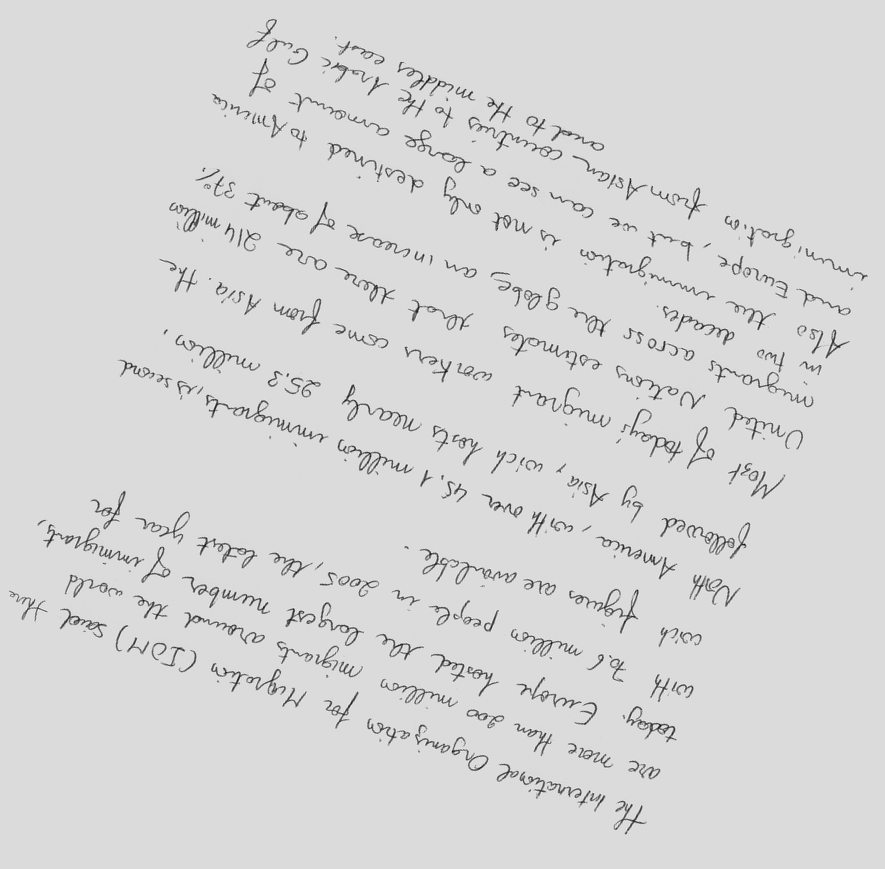 The International Organization for Migration (IOM) said there
are more than 200 million migrants around the world
today. Europe hosted the largest number of immigrants,
with 70.6 million people in 2005, the latest year for
wich figures are available.
North America, with over 45.1 million immigrants, is second
followed by Asia, wich hosts nearly 25.3 million,
Most of today's migrant workers come from Asia. The
United Nations estimates that there are 214 million
migrants across the globe, an increase of about 37%
in two decades.
Also the immigration is not only destined to America
and Europe, but we can see a large amount of
immigration from Asian countries to the Arabic Gulf
and to the middles east.